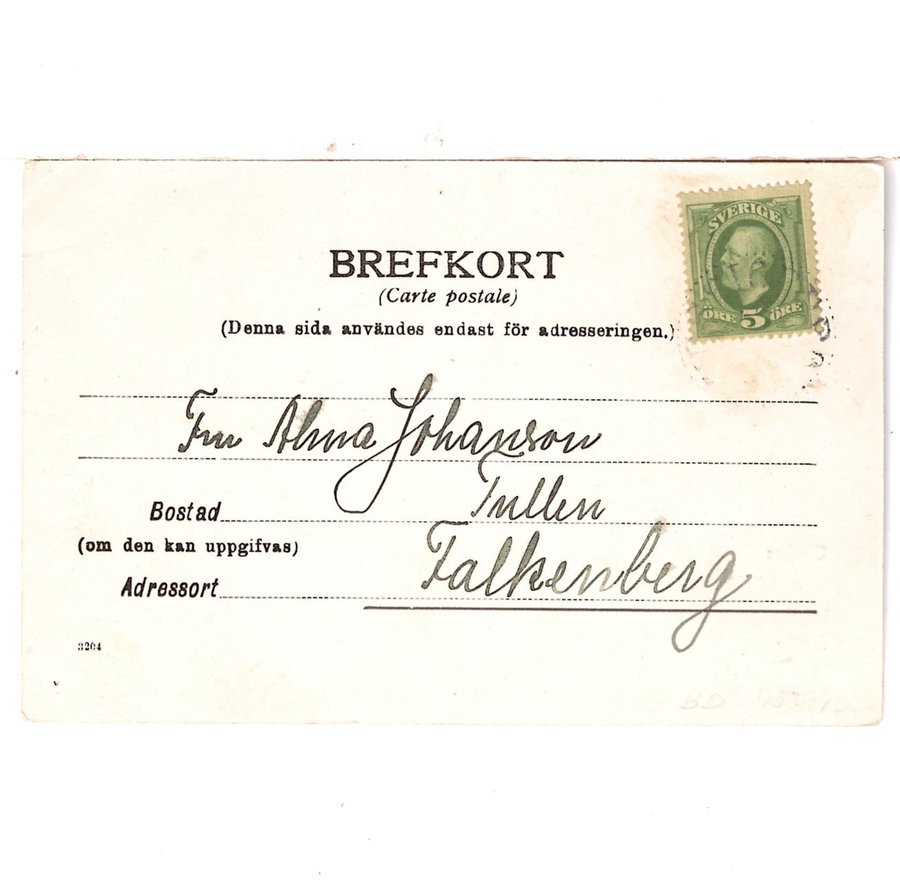 BREFKORT
(Carte postale)
(Denna sida användes endast för adresseringen.)
SVERIGE
ÖRE 5 ÖRE
Fru Alma Johanson
Tullen
Bostad
(om den kan uppgifvas)
Falkenberg
Adressort
3204